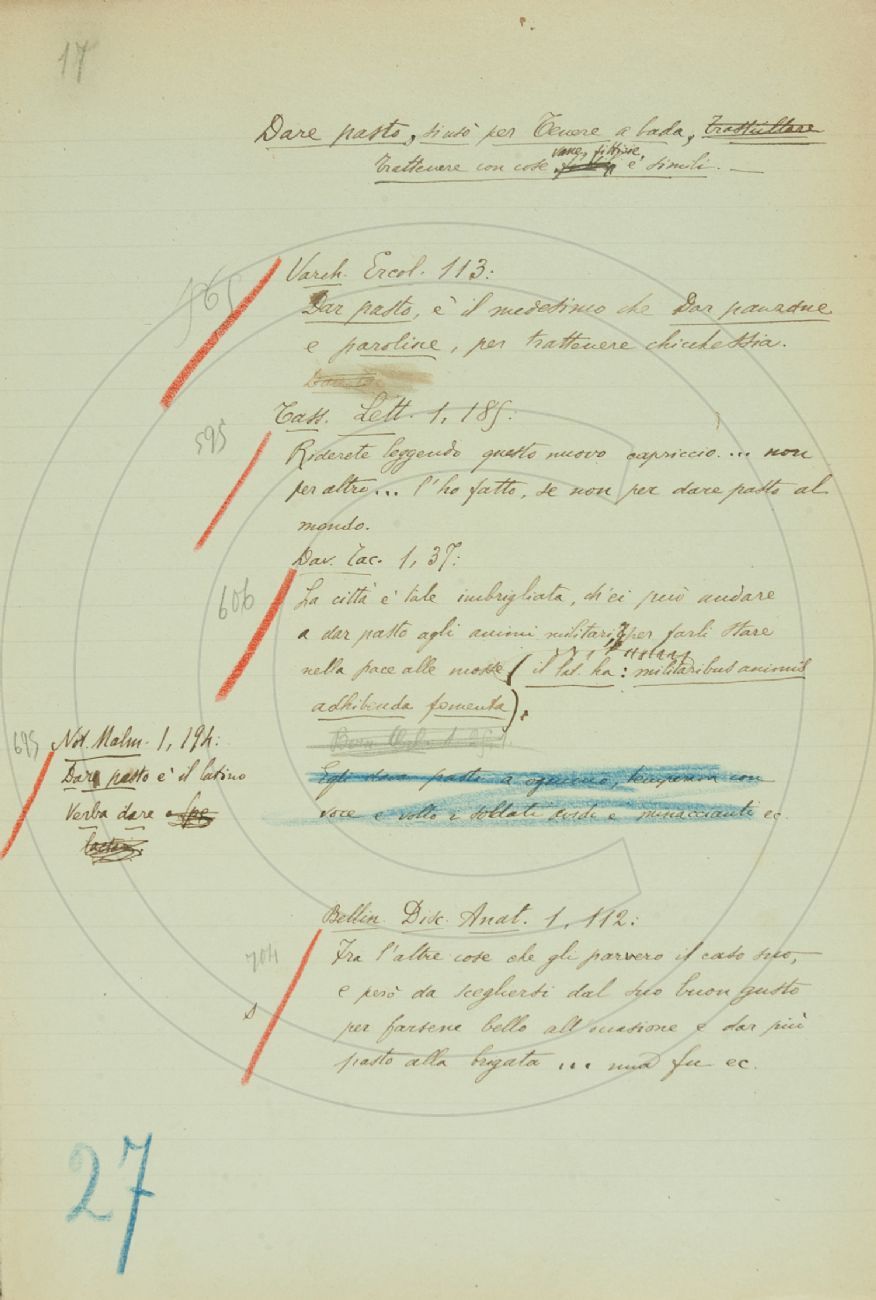 17
Dare pasto, si usò per Tenere a bada, Trastullare
vane, fittizie,
Trattenere con cose e simili. —
565
Varch. Ercol. 113:
Dar pasto, è il medesimo che Dar panzane
e paroline, per trattenere chicchessia.
595
Tass. Lett. 1, 185:
Riderete leggendo questo nuovo capriccio.... non
per altro... l'ho fatto, se non per dare pasto al
mondo.
606
Dav. Tac. 1, 37:
La città è tale imbrigliata, ch'ei può andare
a dar pasto agli animi militari, per farli stare
nella pace alle mosse (il lat. ha: militaribus animis
adhibenda fomenta).
695
Not. Malm. 1, 194:
Dare pasto è il latino
Verba dare
lactare.
Egli dava pasto a ognuno, temperava con
voce e volto i soldati sordi e minaccianti ec.
704
Bellin. Disc. Anat. 1, 112:
Fra l'altre cose che gli parvero il caso suo,
e però da scegliersi dal suo buon gusto
per farsene bello all'occasione e dar più
pasto alla brigata ... una fu ec.
27